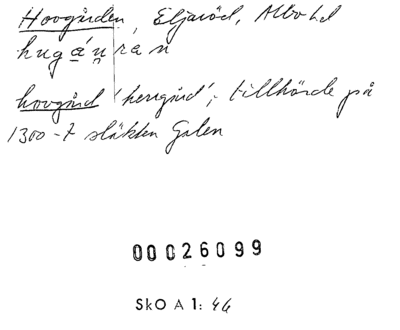 Hovgården, Eljaröd, Albo hd
hugá̲u̲rán
hovgård 'herrgård'; tillhörde på
1300-t släkten Galen
00026099
SkO A 1: 46